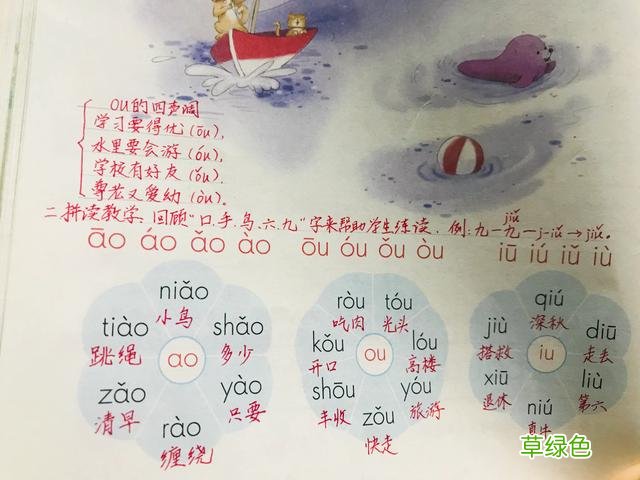 ou的四声调
学习要得优(ōu),
水里要会游(óu),
学校有好友(ǒu).
尊老又爱幼(òu).
二.拼读教学、回顾"口.手.鸟.六.九"字来帮助学生练读.例:九—九—j-iǔ→jiǔ.
jiǔ
āo áo ǎo ào
ōu óu ǒu òu
iū iú iǔ iù
niǎo
小鸟
tiào
跳绳
shǎo
多少
ao
zǎo
清早
yào
只要
rào
缠绕
ròu
吃肉
tóu
光头
kǒu
开口
lóu
高楼
ou
shōu
丰收
yóu
旅游
zǒu
快走
qiú
深秋
jiù
搭救
diū
走丢
iu
xiū
退休
liù
第六
niú
草绿色